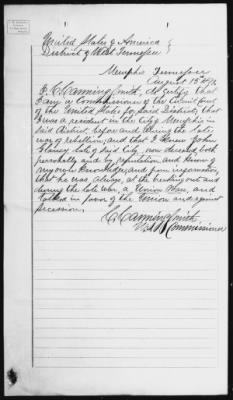 United States of America }
District of West Tennessee }
Memphis Tennessee
August 15th
I, C Canning Smith, do certify that
I am a Commissioner of the Circuit Court
of the United States for said District, that
I was a resident in the City of Memphis in
said District before and during the late
war of rebellion, and that I knew John
late of said City, now deceased both
personally and by reputation and know of
my own knowledge and from information
that he was, always, at the breaking out and
during the late war, a Union Man, and
talked in favor of the Union and against
secession.
C Canning Smith
Commissioner